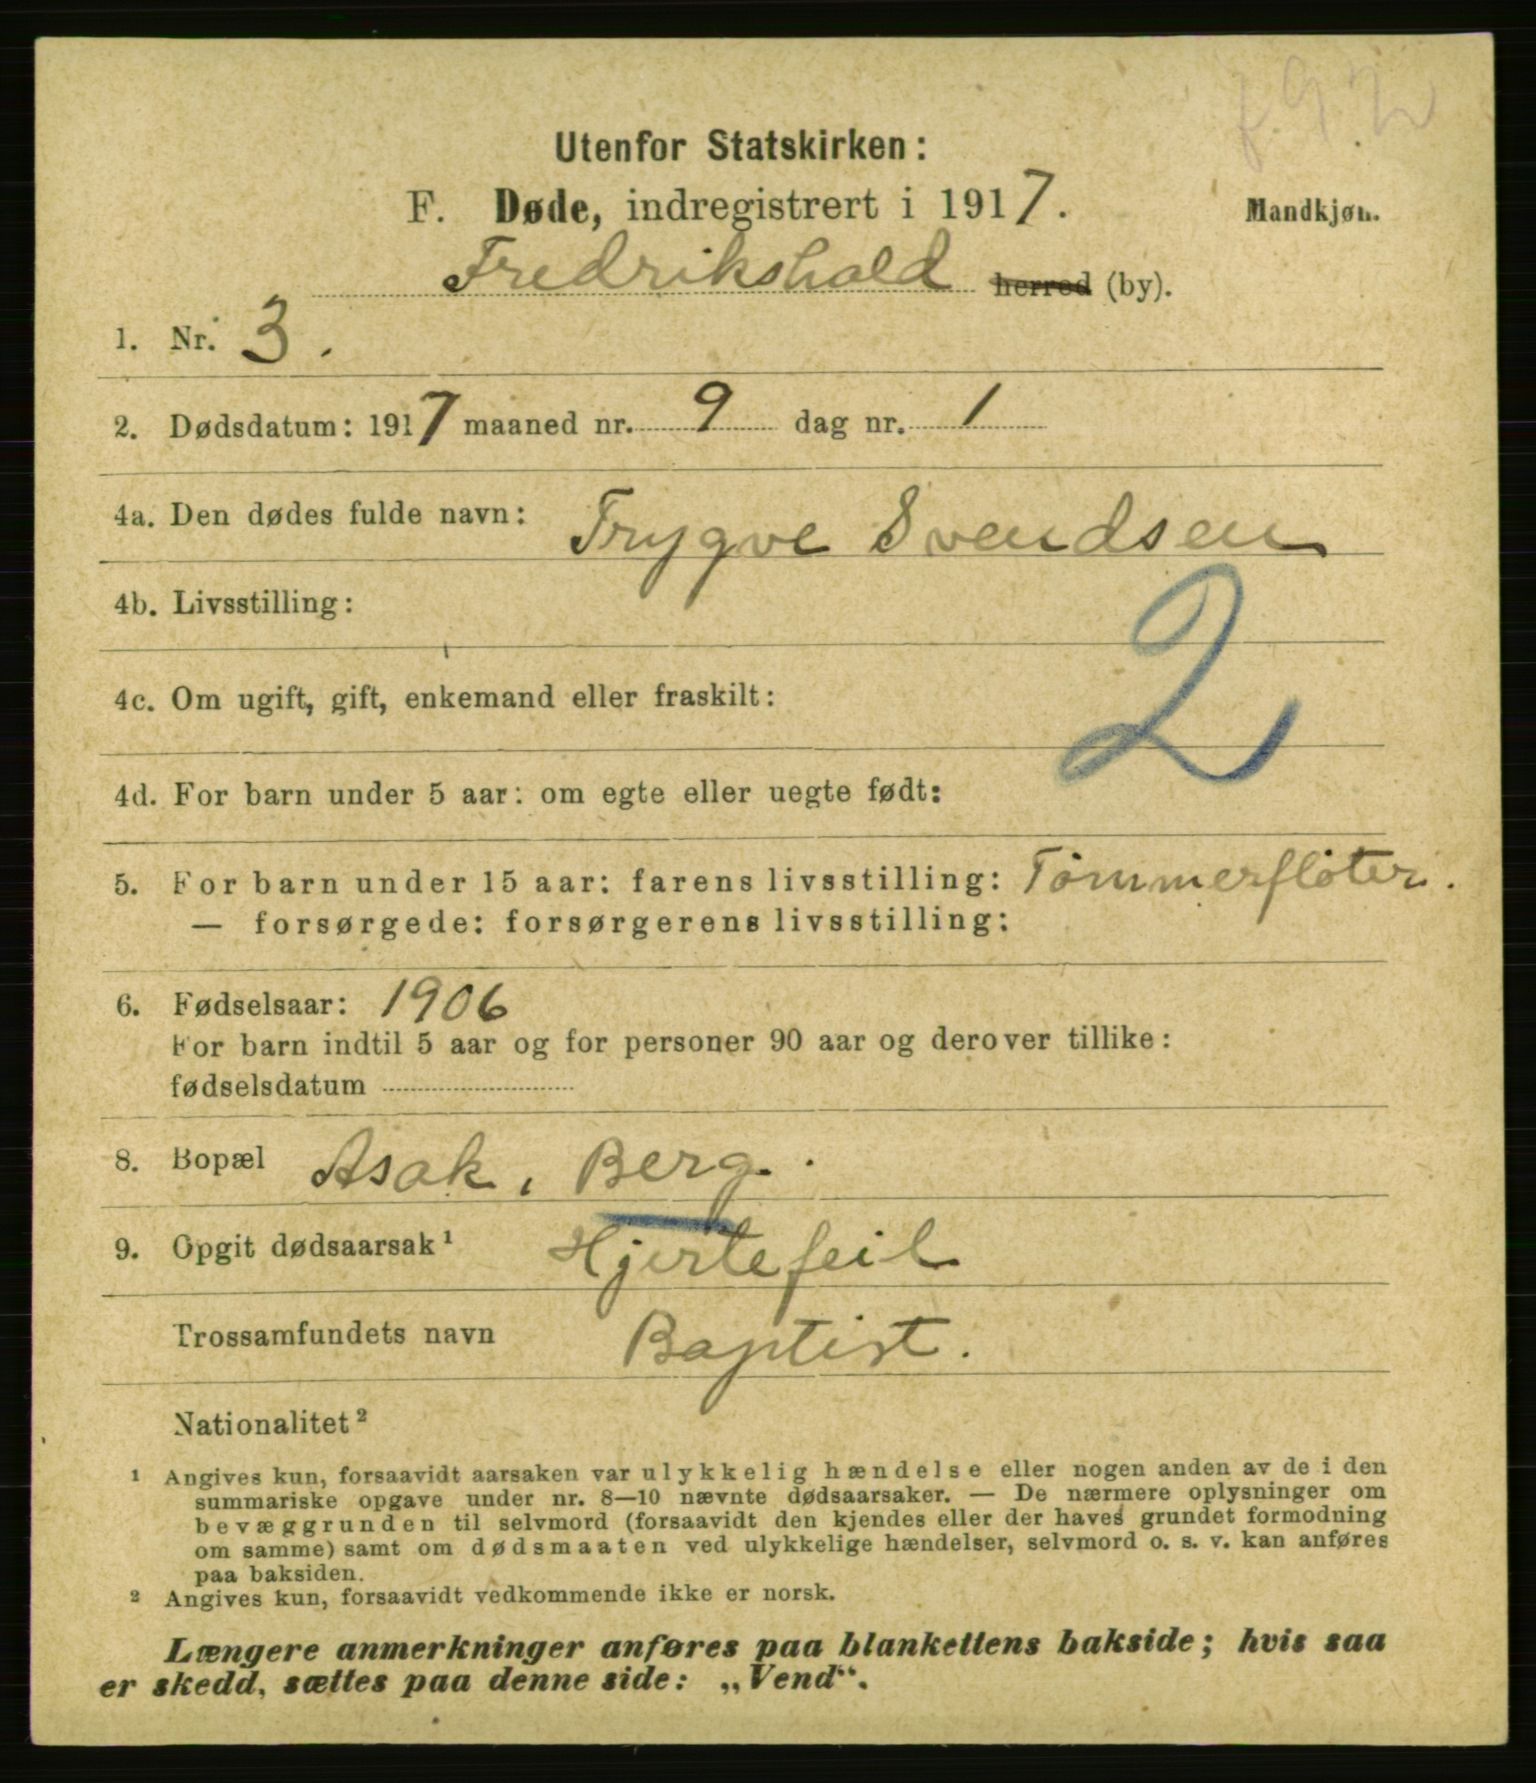 792
Utenfor Statskirken:
F. Døde, indregistrert i 1917.
Mandkjøn.
Fredrikshald herred (by).
1. Nr. 3.
2. Dødsdatum: 1917 maaned nr. 9 dag nr. 1
4a. Den dødes fulde navn: Trygve Svendsen
4b. Livsstilling:
2
4c. Om ugift, gift, enkemand eller fraskilt:
4d. For barn under 5 aar: om egte eller uegte født:
5. For barn under 15 aar: farens livsstilling: Tømmerfløter.
— forsørgede: forsørgerens livsstilling:
6. Fødselsaar: 1906
For barn indtil 5 aar og for personer 90 aar og derover tillike:
fødselsdatum
8. Bopæl Asak, Berg.
9. Opgit dødsaarsak¹ Hjertefeil
Trossamfundets navn Baptist.
Nationalitet²
¹ Angives kun, forsaavidt aarsaken var ulykkelig hændelse eller nogen anden av de i den
summariske opgave under nr. 8—10 nævnte dødsaarsaker. — De nærmere oplysninger om
bevæggrunden til selvmord (forsaavidt den kjendes eller der haves grundet formodning
om samme) samt om dødsmaaten ved ulykkelige hændelser, selvmord o. s. v. kan anføres
paa baksiden.
² Angives kun, forsaavidt vedkommende ikke er norsk.
Længere anmerkninger anføres paa blankettens bakside; hvis saa
er skedd, sættes paa denne side: „Vend“.